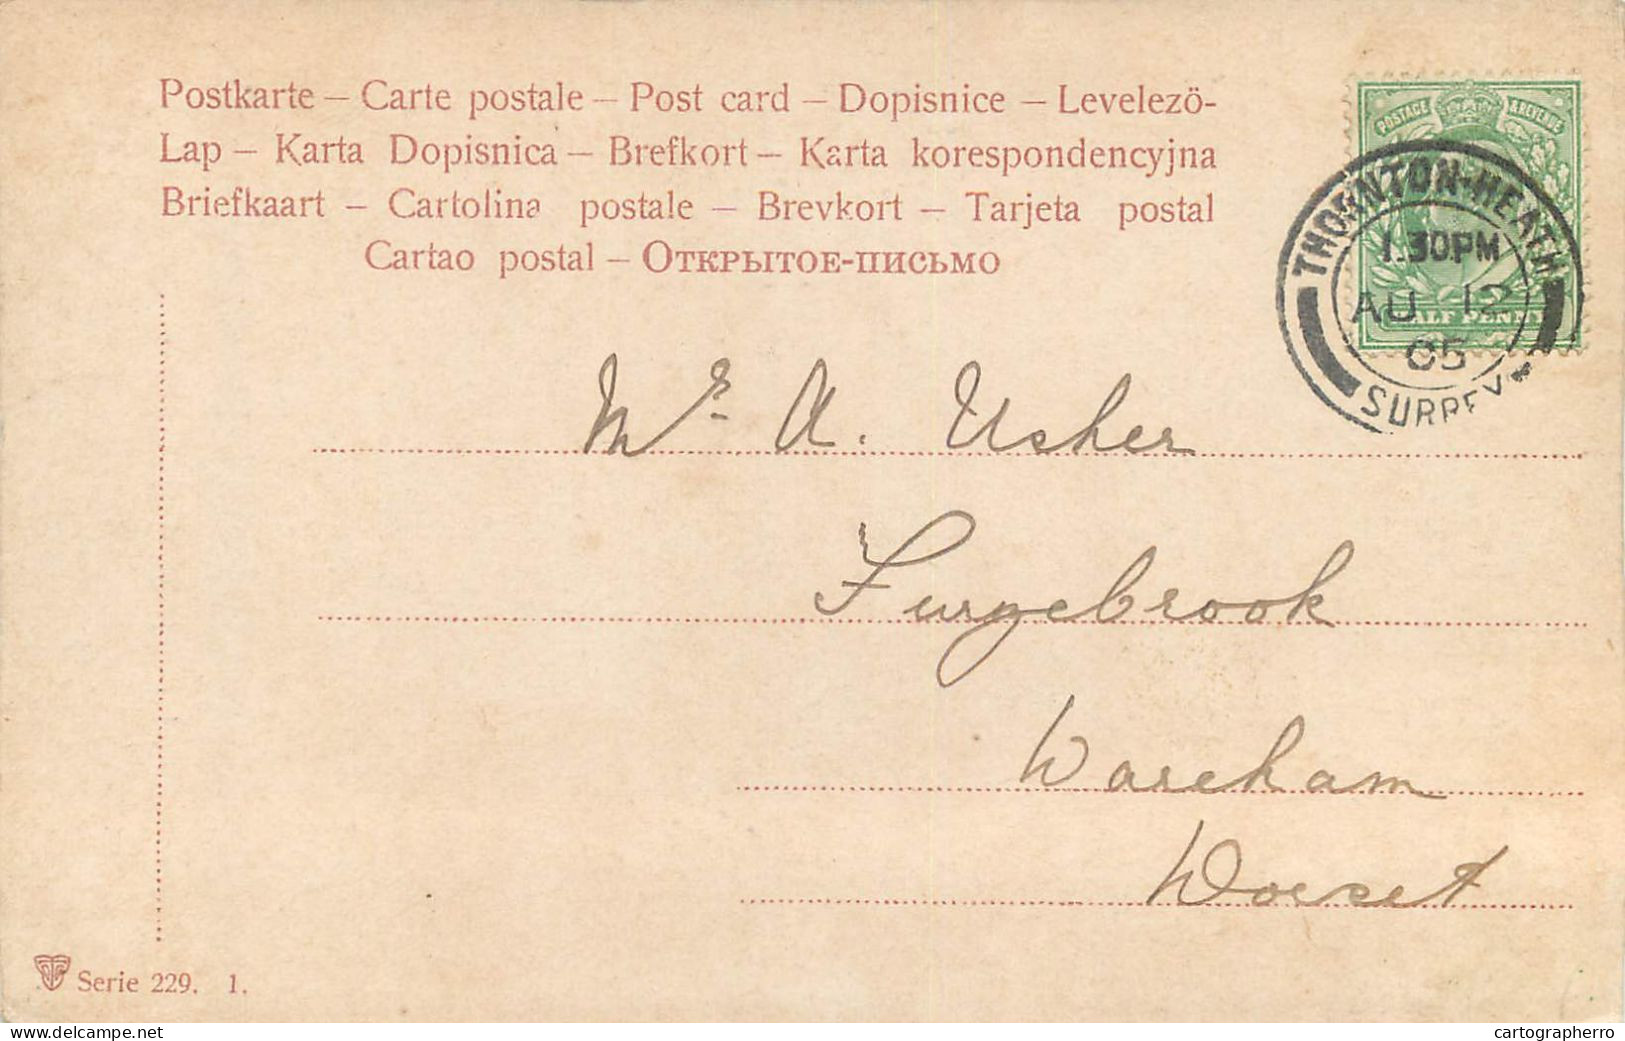 Postkarte – Carte postale – Post card – Dopisnice – Levelező-
Lap – Karta Dopisnica – Brefkort – Karta korespondencyjna
Briefkaart – Cartolina postale – Brevkort – Tarjeta postal
Cartao postal – Открытое-письмо
POSTAGE & REVENUE
HALF PENNY
THORNTON-HEATH
1.30PM
AU 12
05
SURREY
Mr. A. Usher
Furzebrook
Wareham
Dorset
Serie 229. 1.
delcampe.net
cartographerro